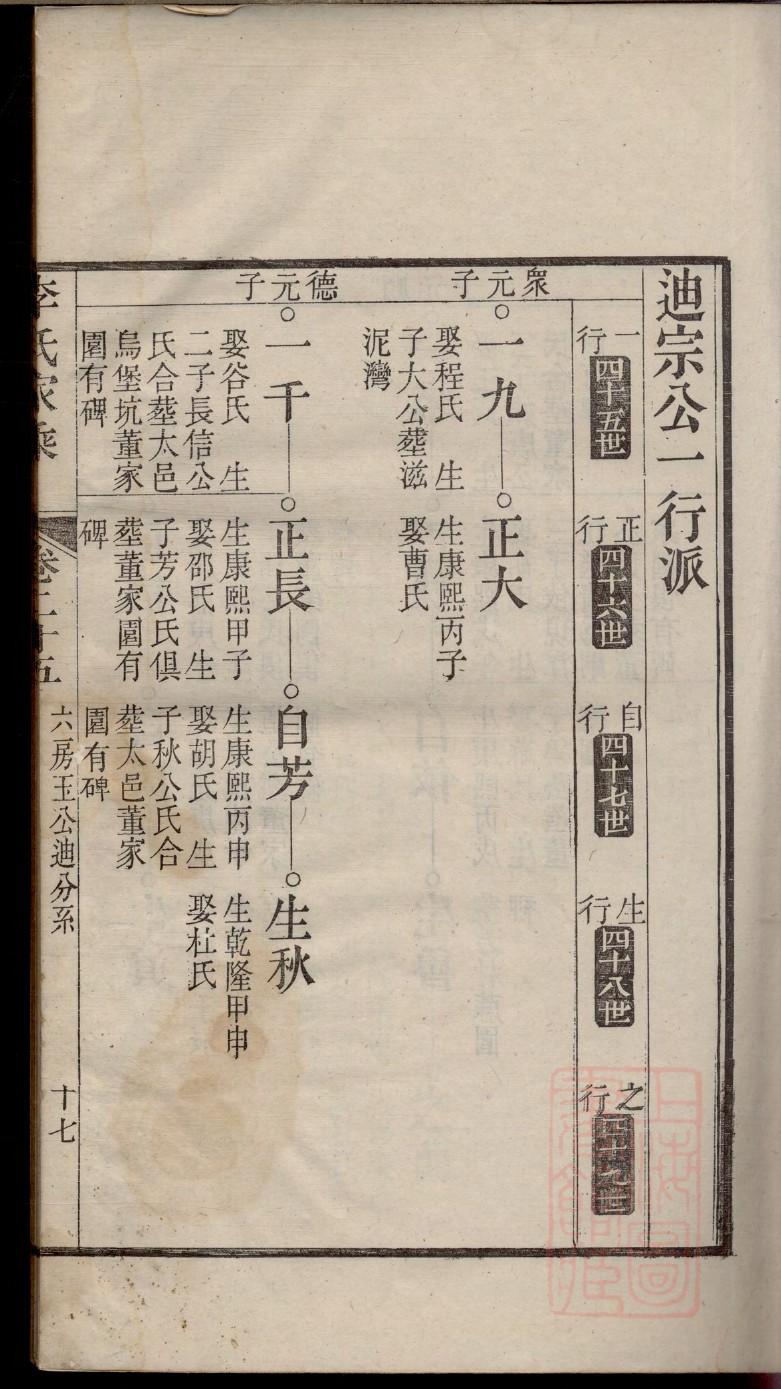 迪宗公一行派
一行
四十五世
正行
四十六世
自行
四十七世
生行
四十八世
之行
四十九世
衆元子
一九
娶程氏　生
子大公塟滋
泥灣
正大
生康熙丙子
娶曹氏
德元子
一千
娶谷氏　生
二子長信公
氏合塟太邑
烏堡坑董家
園有碑
正長
生康熙甲子
娶邵氏　生
子芳公氏俱
塟董家園有
碑
自芳
生康熙丙申
娶胡氏　生
子秋公氏合
塟太邑董家
園有碑
生秋
生乾隆甲申
娶杜氏
李氏家乘
卷二十五
六房玉公迪分系
十七